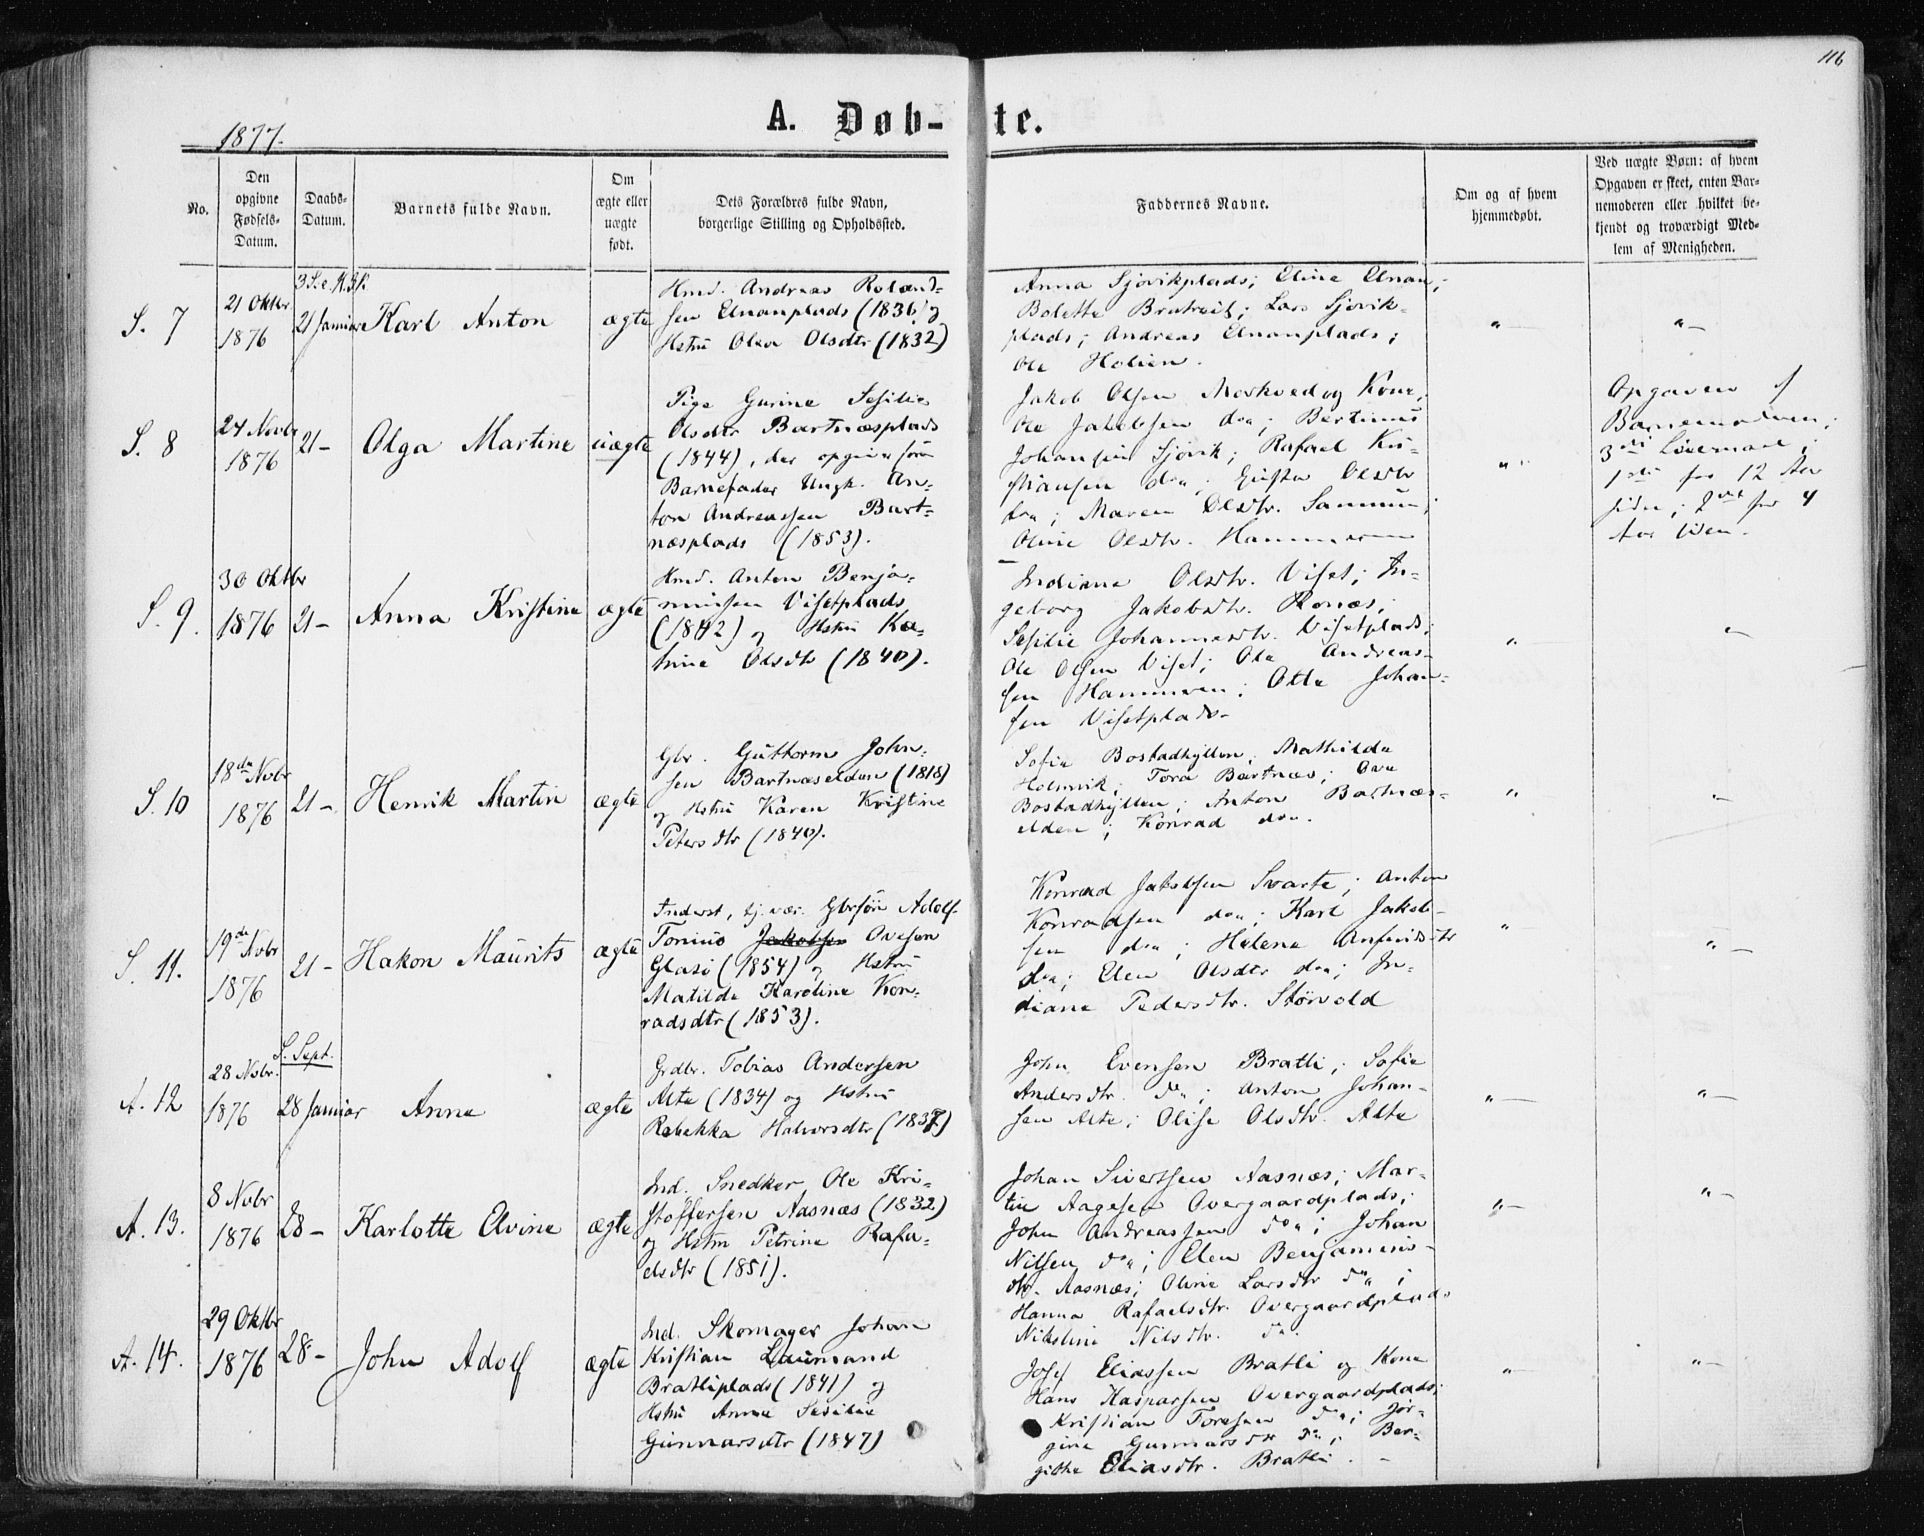 116
1877.
A. Døb-
te.
No.
Den
opgivne
Fødsels-
Datum.
Daabs-
Datum.
Barnets fulde Navn.
Om
ægte eller
uægte
født.
Dets Forældres fulde Navn,
borgerlige Stilling og Opholdssted.
Faddernes Navne.
Om og af hvem
hjemmedøbt.
Ved uægte Børn: af hvem
Opgaven er skeet, enten Bar-
nemoderen eller hvilket be-
kjendt og troværdigt Med-
lem af Menigheden.
S. 7
21 Oktbr
1876
21 Januar
Karl Anton
ægte
Hmd. Andreas Roland-
sen Elnanplads (1836) og
Hstru Olava Olsdtr (1832)
Anna Sjøvikplads; Eline Elnan;
Bolette Bratreit; Lars Sjøvik-
plads; Andreas Elnanplads;
Ole Holien.
"—
"—
S. 8
24 Novbr
1876
21–
Olga Martine
uægte
Pige Gurine Sesilie
Olsdtr Bartnæsplads
(1844), der opgiver som
Barnefader Ungk. An-
ton Andreassen Bart-
næsplads (1853).
Jakob Olsen Moskved og Kone,
Ole Jakobsen do; Bertinus
Johansen Sjøvik; Rafael Kri-
stiansen do; Gusta Olsdtr
do; Maren Olsdtr. Sammun;
Oline Olsdtr. Hammeren
"
Opgaven af
Barnemoderen;
3die Leiermaal;
1ste for 12 Aar
siden; 2det for 4
Aar siden.
S. 9.
30 Oktbr
1876
21–
Anna Kristine
ægte
Hmd. Anton Benja-
minsen Visetplads
(1842) og Hstru Ka-
trine Olsdtr (1840).
Indiana Olsdtr. Viset; In-
geborg Jakobsdtr. Ronæs;
Sesilie Johannesdtr. Visetplads;
Ole Olsen Viset; Ole Andreas-
sen Hammeren; Otte Johan-
sen Visetplads-
"—
"—
S. 10
18de Nvbr
1876
21–
Henrik Martin
ægte
Gbr. Guttorm John-
sen Bartnæselden (1818)
og Hstru Karen Kristine
Petersdtr (1840).
Sofie Bostadhyllen; Mathilda
Holmvik; Tora Bartnæs; Ove
Bostadhyllen; Anton Bartnæs-
elden; Konrad do.
"—
"—
S. 11.
19de Nvbr
1876
21–
Hakon Maurits
ægte
Inderst, tj. vær. Gbrsøn Adolf
Tonius Jakobsen Ovesen
Glasø (1854) og Hstru
Matilde Karoline Kon-
radsdtr (1853).
Konrad Jakobsen Svarte; Anton
Konradsen do; Karl Jakob-
sen do; Helena Anfindsdtr
do; Elen Olsdtr do; In-
diana Pedersdtr. Størvold
"—
"—
S. Sept.
A. 12
28 Nvbr.
1876
28 Januar
Anne
ægte
Grdbr. Tobias Andersen
Alte (1834) og Hstru
Rebekka Halvorsdtr (1837)
John Evensen Bratli; Sofie
Andersdtr. do; Anton Johan-
sen Alte; Olise Olsdtr. Alte
"—
"—
A. 13.
8 Nvbr
1876
28–
Karlotte Elvine
ægte
Ind. Snedker Ole Kri-
stoffersen Aasnæs (1832)
og Hstru Petrine Rafa-
elsdtr (1851).
Johan Sivertsen Aasnæs; Mar-
tin Aagesen Overgaardplads;
John Andreassen do; Johan
Nilsen do; Elen Benjamins-
dtr. Aasnæs; Oline Larsdtr do;
Hanna Rafaelsdtr. Overgaardplads
Nikoline Nilsdtr. do.
"—
"—
A. 14.
29 Oktbr
1876
28–
John Adolf
ægte
Ind. Skomager Johan
Kristian Laumand
Bratliplads (1841) og
Hstru Anna Sesilie
Gunnarsdtr (1847)
Josef Eliassen Bratli og Kone
Hans Kasparsen Overgaardplads;
Kristian Toresen do; Jør-
gine Gunnarsdtr do; Ber-
githe Eliasdtr. Bratli.
"—
"—